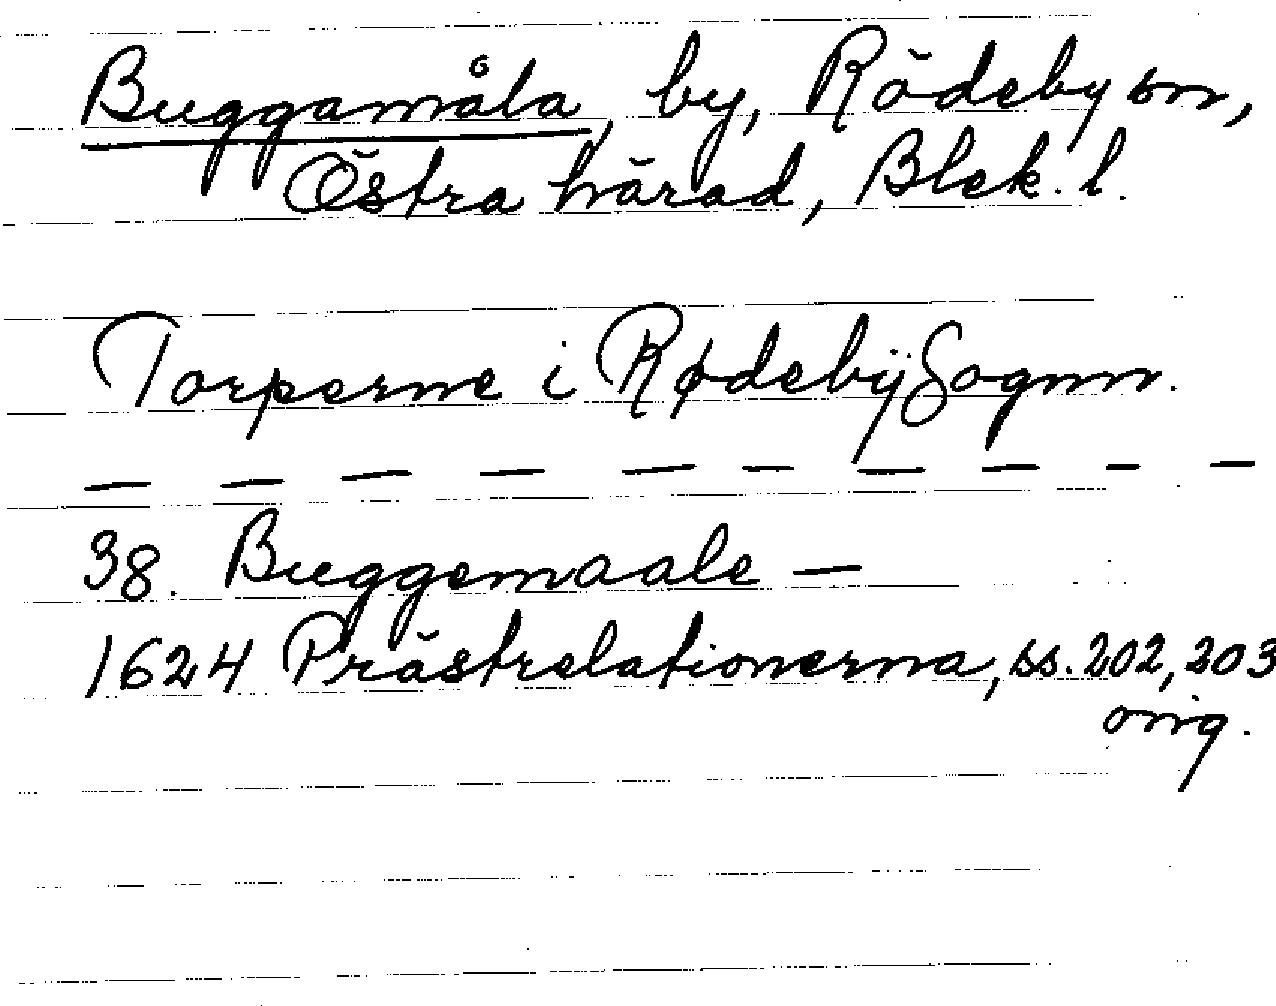 Buggamåla, by, Rödeby sn,
Östra härad, Blek. l.
Torperne i Rødebÿ Sognn.
— — — — — — — — — —
38. Buggemaale —
1624 Prästrelationerna, ss. 202, 203
orig.